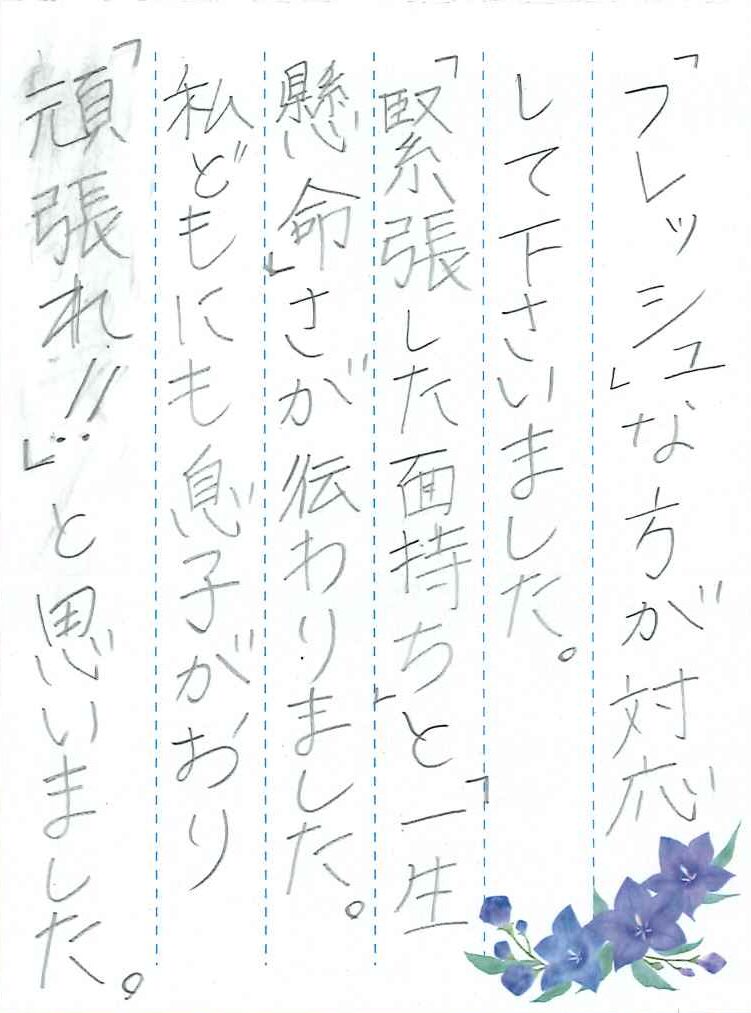 「フレッシュ」な方が対応
して下さいました。
「緊張した面持ち」と「一生
懸命」さが伝わりました。
私どもにも息子がおり
「頑張れ!!」と思いました。